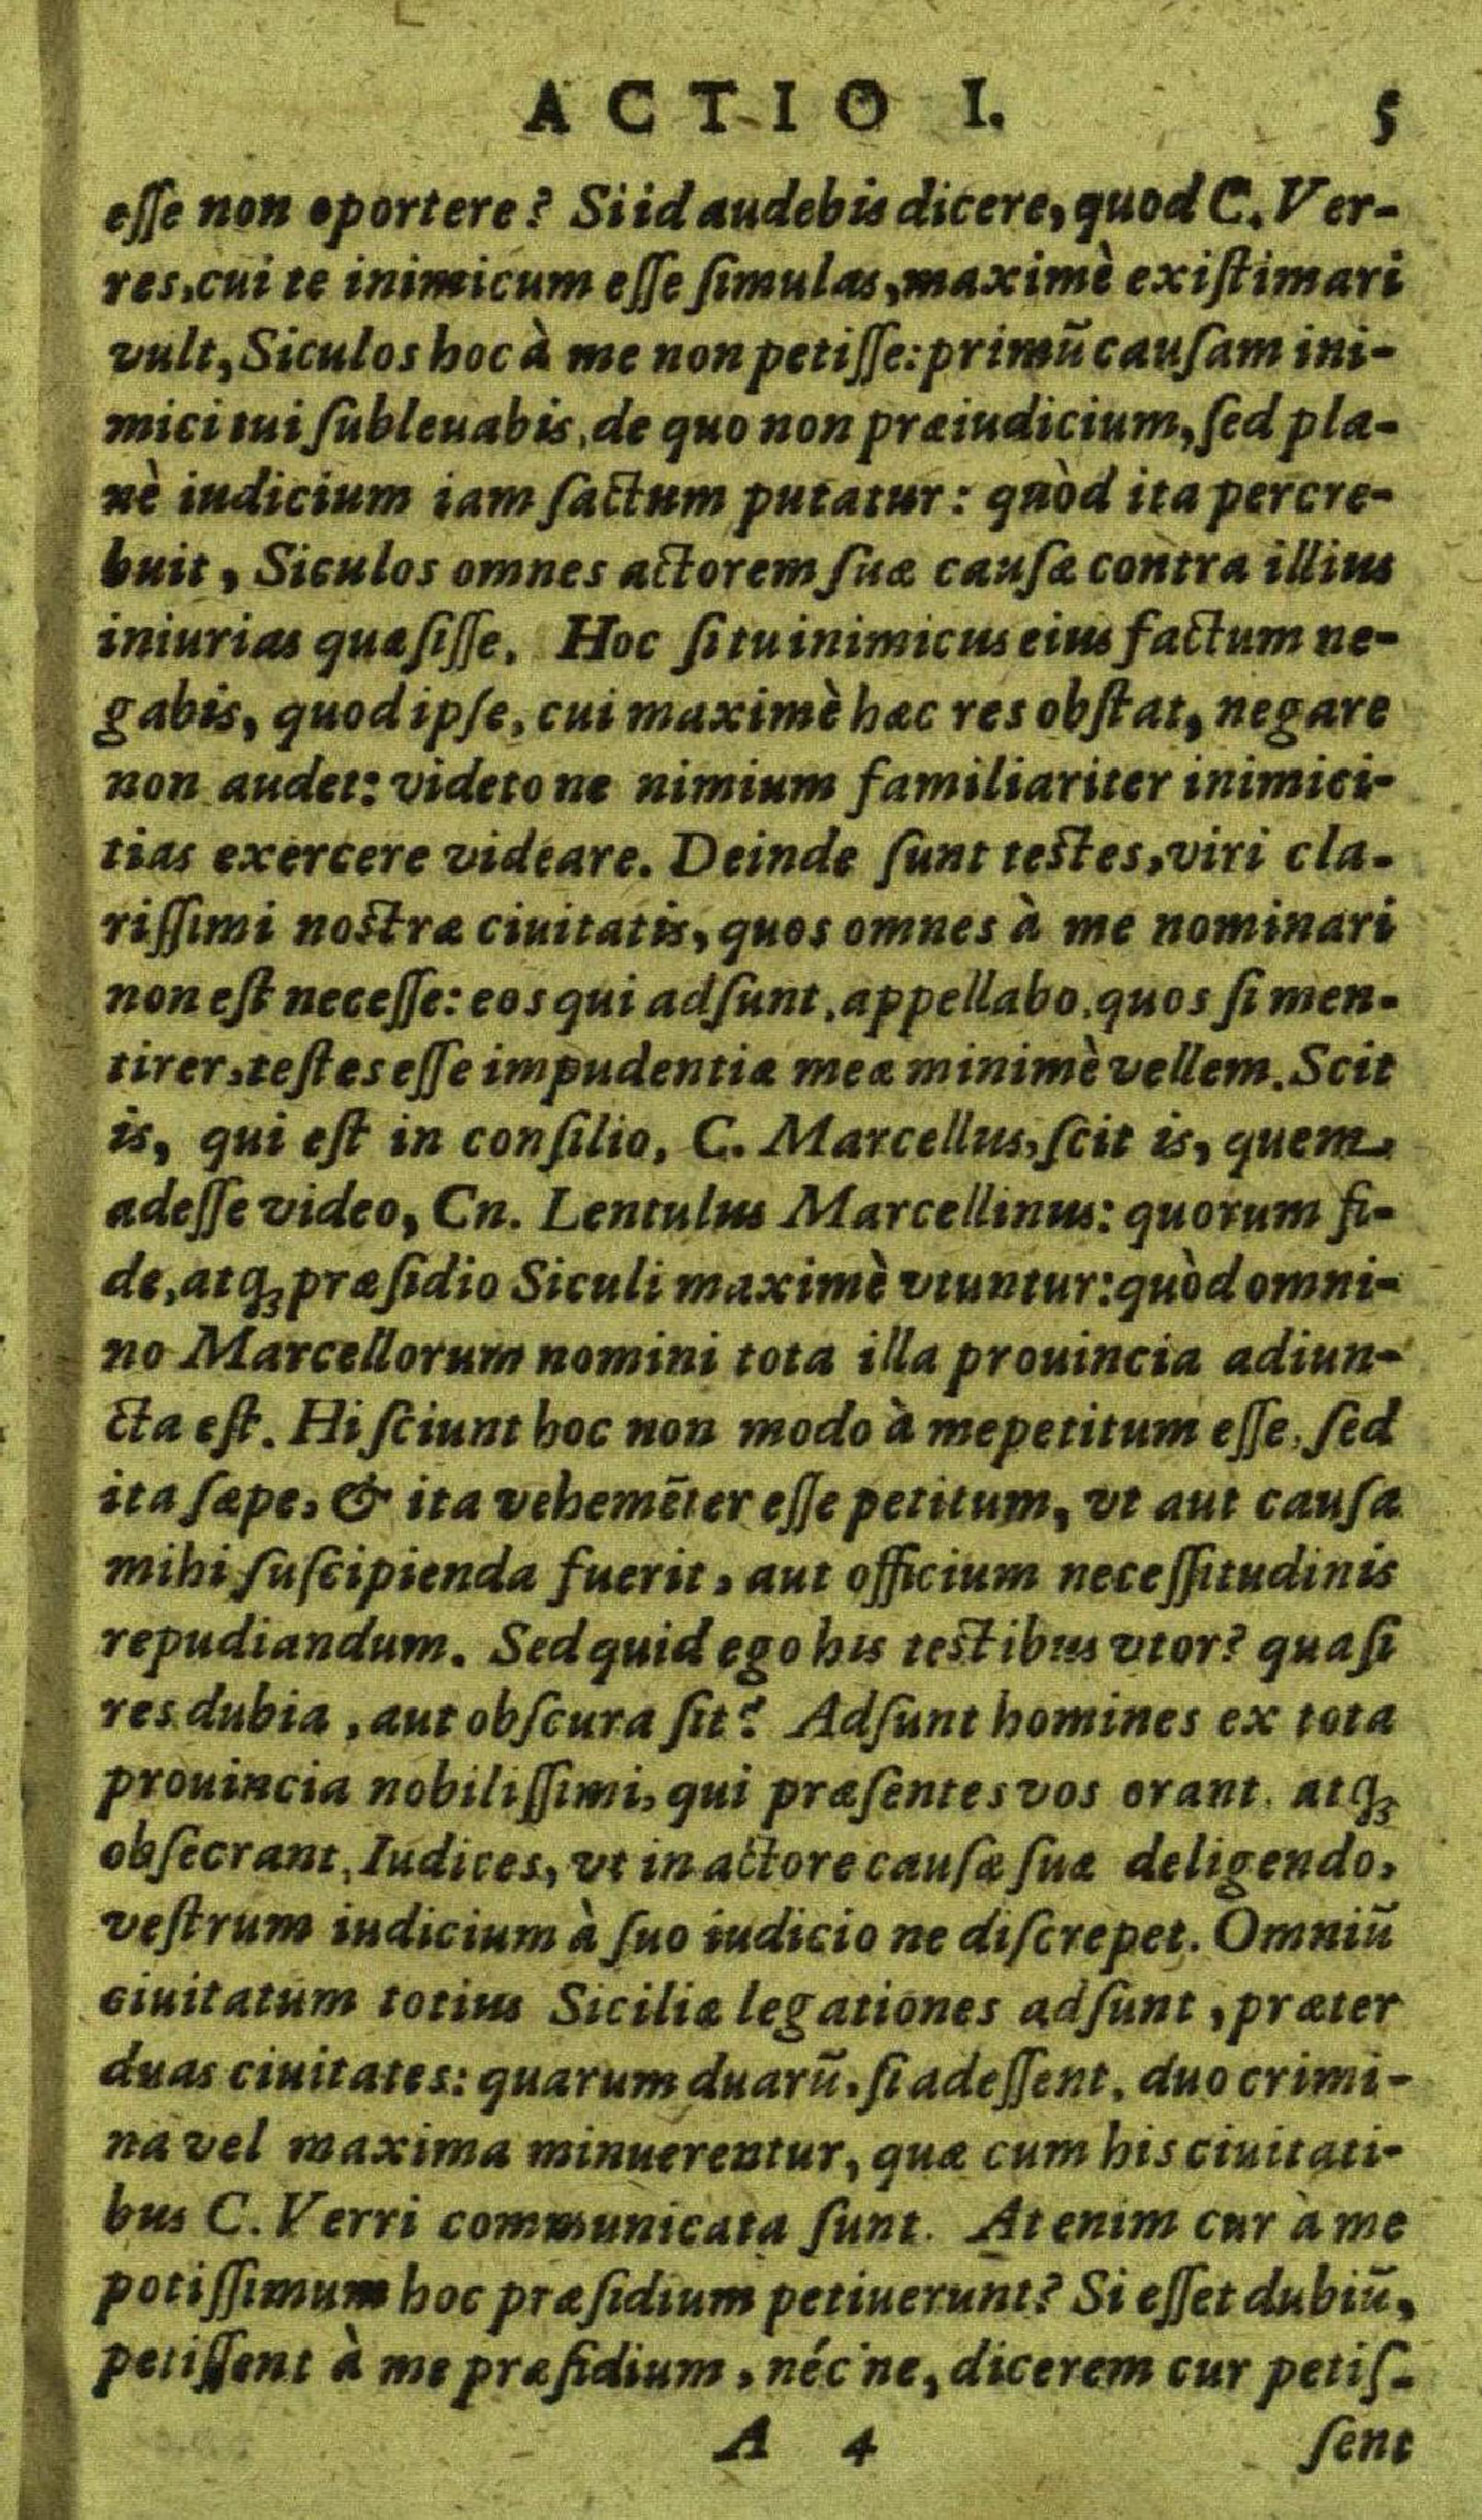 ACTIO I. 5
eſſe non oportere? Si id audebis dicere, quod C. Ver-
res, cui te inimicum eſſe ſimulas, maximè exiſtimari
vult, Siculos hoc à me non petiſſe: primũ cauſam ini-
mici tui ſubleuabis, de quo non præiudicium, ſed pla-
nè iudicium iam factum putatur: quòd ita percre-
buit, Siculos omnes actorem ſuæ cauſæ contra illius
iniurias quæſiſſe. Hoc ſi tu inimicus eius factum ne-
gabis, quod ipſe, cui maximè hæc res obſtat, negare
non audet: videto ne nimium familiariter inimici-
tias exercere videare. Deinde ſunt teſtes, viri cla-
riſſimi noſtræ ciuitatis, quos omnes à me nominari
non eſt neceſſe: eos qui adſunt, appellabo. quos ſi men-
tirer, teſtes eſſe impudentiæ meæ minimè vellem. Scit
is, qui eſt in conſilio, C. Marcellus, ſcit is, quem
adeſſe video, Cn. Lentulus Marcellinus: quorum fi-
de, atq; præſidio Siculi maximè vtuntur: quòd omni-
no Marcellorum nomini tota illa prouincia adiun-
cta eſt. Hi ſciunt hoc non modo à me petitum eſſe, ſed
ita ſæpe, & ita vehemẽter eſſe petitum, vt aut cauſa
mihi ſuſcipienda fuerit, aut officium neceſſitudinis
repudiandum. Sed quid ego his teſtibus vtor? quaſi
res dubia, aut obſcura ſit? Adſunt homines ex tota
prouincia nobiliſſimi, qui præſentes vos orant, atq;
obſecrant, Iudices, vt in actore cauſæ ſuæ deligendo,
veſtrum iudicium à ſuo iudicio ne diſcrepet. Omniũ
ciuitatum totius Siciliæ legationes adſunt, præter
duas ciuitates: quarum duarũ, ſi adeſſent, duo crimi-
na vel maxima minuerentur, quæ cum his ciuitati-
bus C. Verri communicata ſunt. At enim cur à me
potiſſimum hoc præſidium petiuerunt? Si eſſet dubiũ,
petiſſent à me præſidium, néc ne, dicerem cur petiſ-
A 4 ſent